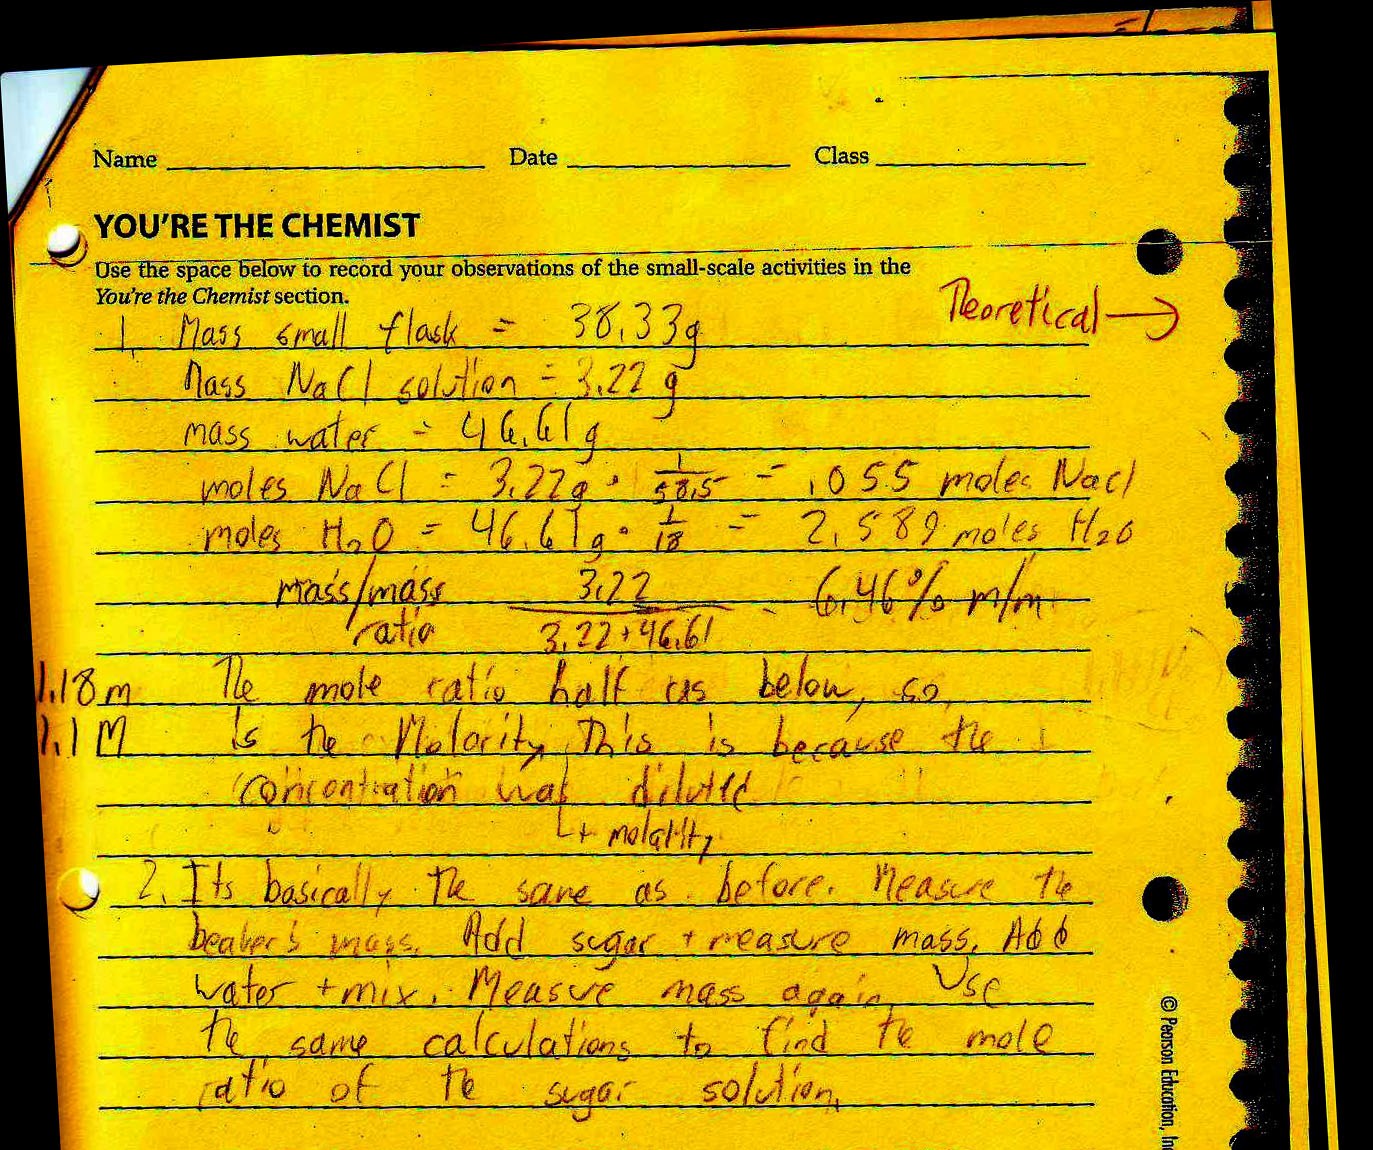 Name Date Class
YOU'RE THE CHEMIST
Use the space below to record your observations of the small-scale activities in the
You're the Chemist section.
Theoretical →
1. Mass small flask = 38.33g
Mass NaCl solution = 3.22 g
mass water = 46.61g
moles NaCl = 3.22g · 1/58.5 = .055 moles NaCl
moles H₂O = 46.61g · 1/18 = 2.589 moles H₂O
mass/mass ratio 3.22/3.22+46.61 = 6.46% m/m
1.18m The mole ratio half as below, so
1.1M is the Molarity. This is because the
concentration was diluted
+ molality
2. Its basically the same as before. Measure the
beaker's mass. Add sugar + measure mass. Add
water + mix. Measure mass again. Use
the same calculations to find the mole
ratio of the sugar solution.
© Pearson Education, Inc